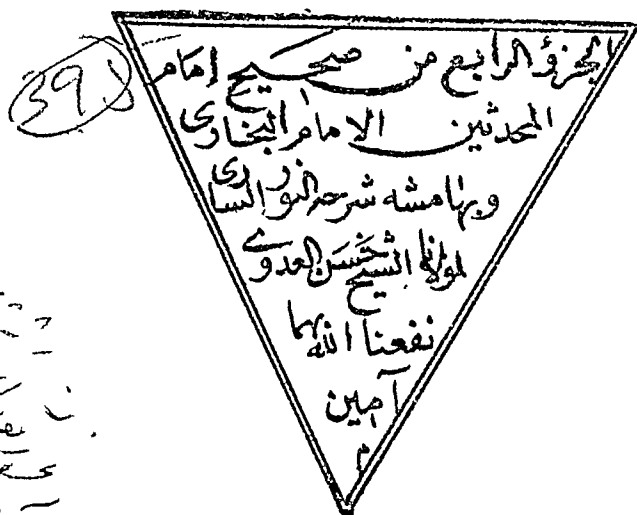 الجزؤ الرابع من صحيح إمام
المحدثين الامام البخارى
وبهامشه شرحه النور السارى
لمولانا الشيخ حسن العدوى
نفعنا الله بهما
آمين
م